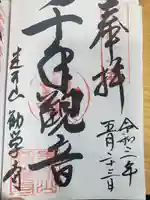 奉拝
令和二年
五月二十三日
千手観音
勧学寺